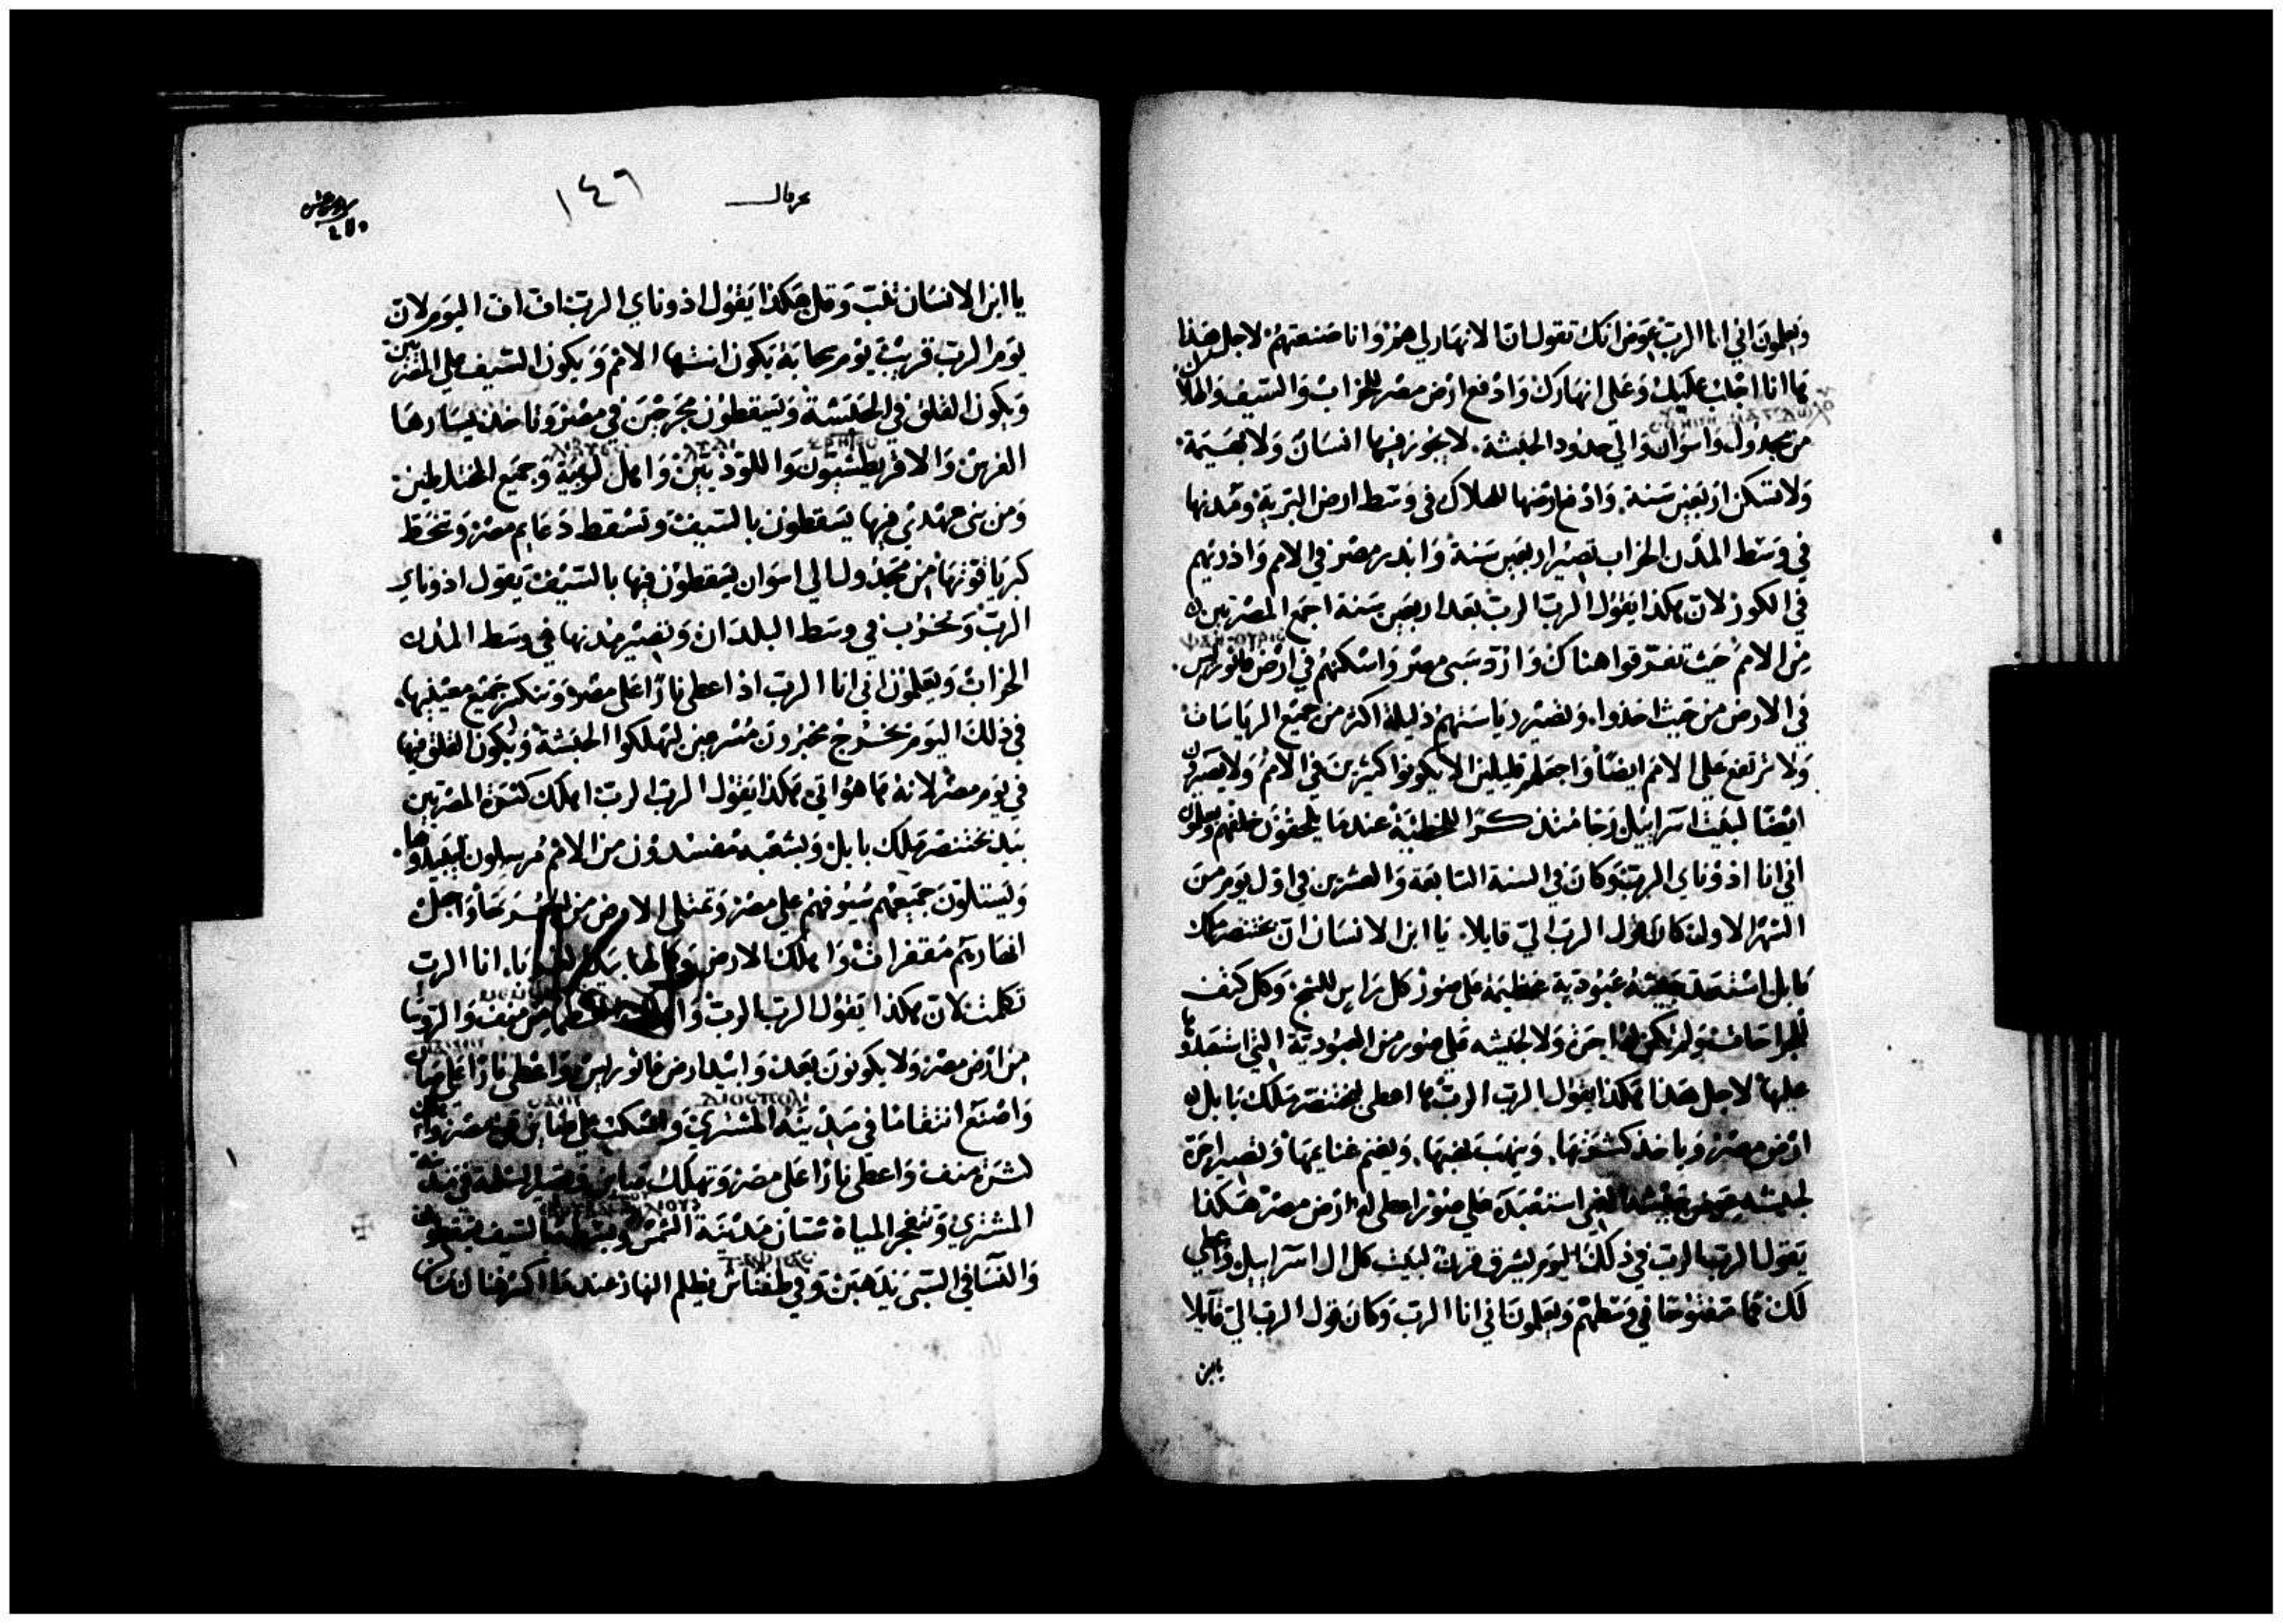 ويعلمون اني انا الرب عوض انك تقول ان الانهار لي هم وانا صنعتهم لاجل هذا
ها انا اجلب عليك وعلي انهارك وادفع ارض مصر للخراب والسيف والهلاك
من مجدول واسوان والي حدود الحبشة. لا يجوز فيها انسان ولا بهيمة.
ولا تسكن اربعين سنة. وادفع ارضها للهلاك في وسط ارض البرية ومدنها
في وسط المدن الخراب تصير اربعين سنة وابدد مصر في الامم واذريهم
في الكور لان هكذا يقول الرب الرب بعد اربعين سنة اجمع المصريين
من الامم حيث تفرقوا هناك وارد سبي مصر واسكنهم في ارض فاثوراس.
في الارض من حيث اخذوا. وتصير رياستهم ذليلة اكثر من جميع الرياسات
ولا ترتفع علي الامم ايضا واجعلهم قليلين لا يكونوا كثيرين في الامم ولا يصيرون
ايضا لبيت اسراييل رجا منذكرا للخطية عندما يلحقون خلفهم ويعلمون
اني انا اذوناي الرب وكان في السنة السابعة والعشرين في اول يوم من
الشهر الاول كان قول الرب الي قايلا. يا ابن الانسان ان بختنصر ملك
بابل استعبد جيشه عبودية عظيمة علي صور كل راس للشج. وكل كتف
للجراحات ولم تكن له اجرة ولا لجيشه علي صور من العبودية التي استعبدوا
عليها لاجل هذا هكذا يقول الرب الرب ها اعطي لبختنصر ملك بابل
ارض مصر وياخذ كثرتها. وينهب نهبها. ويغنم غنايمها وتصير اجرة
لجيشه عوض استعبد علي صور اعطي له ارض مصر هكذا
يقول الرب الرب في ذلك اليوم يشرق قرن لبيت كل ال اسراييل واعطي
لك فما مفتوحا في وسطهم ويعلمون اني انا الرب وكان قول الرب الي قايلا
يا ابن
١٤٦
يا ابن الانسان تنب وقل هكذا يقول اذوناي الرب اف اف اليوم لان
يوم الرب قريب يوم سحابة يكون انتها الامم ويكون السيف علي المصريين
ويكون القلق في الحبشة ويسقطون مجرحين في مصر وتاخذ يسارها
الفرس والاقريطشيون واللوذيين واهل لوبية وجميع المختلطين
ومن بني عهدي فيها يسقطون بالسيف وتسقط دعايم مصر وتنحط
كبريا قوتها من مجدول الي اسوان يسقطون فيها بالسيف يقول اذوناي
الرب وتخرب في وسط البلدان وتصير مدنها في وسط المدن
الخراب ويعلمون اني انا الرب اذا اعطي نارا علي مصر وتنكسر جميع معينيها.
في ذلك اليوم يخرج مخبرون مسرعين ليهلكوا الحبشة ويكون القلق فيها
في يوم مصر لانه ها هو اتي هكذا يقول الرب الرب اهلك كثرة المصريين
بيد بختنصر ملك بابل وبشعبه مفسدون من الامم مرسلون ليبيدوها.
ويستلون جميعهم سيوفهم علي مصر وتمتلي الارض من واجعل
انهاريهم مقفرات واهلك الارض انا الرب
تكلمت لان هكذا يقول الرب الرب من منف والروسا
من ارض مصر ولا يكونون بعد وابيد ارض فاثوراس واعطي نارا علي صان
واصنع انتقاما في مدينة المشتري واسكب علي مصر
كثرة منف واعطي نارا علي مصر وتهلك
المشتري وتنفجر المياة شبان مدينة الشمس
والنسا في السبي يذهبن وفي طفناس يظلم النهار عندما اكسر هناك